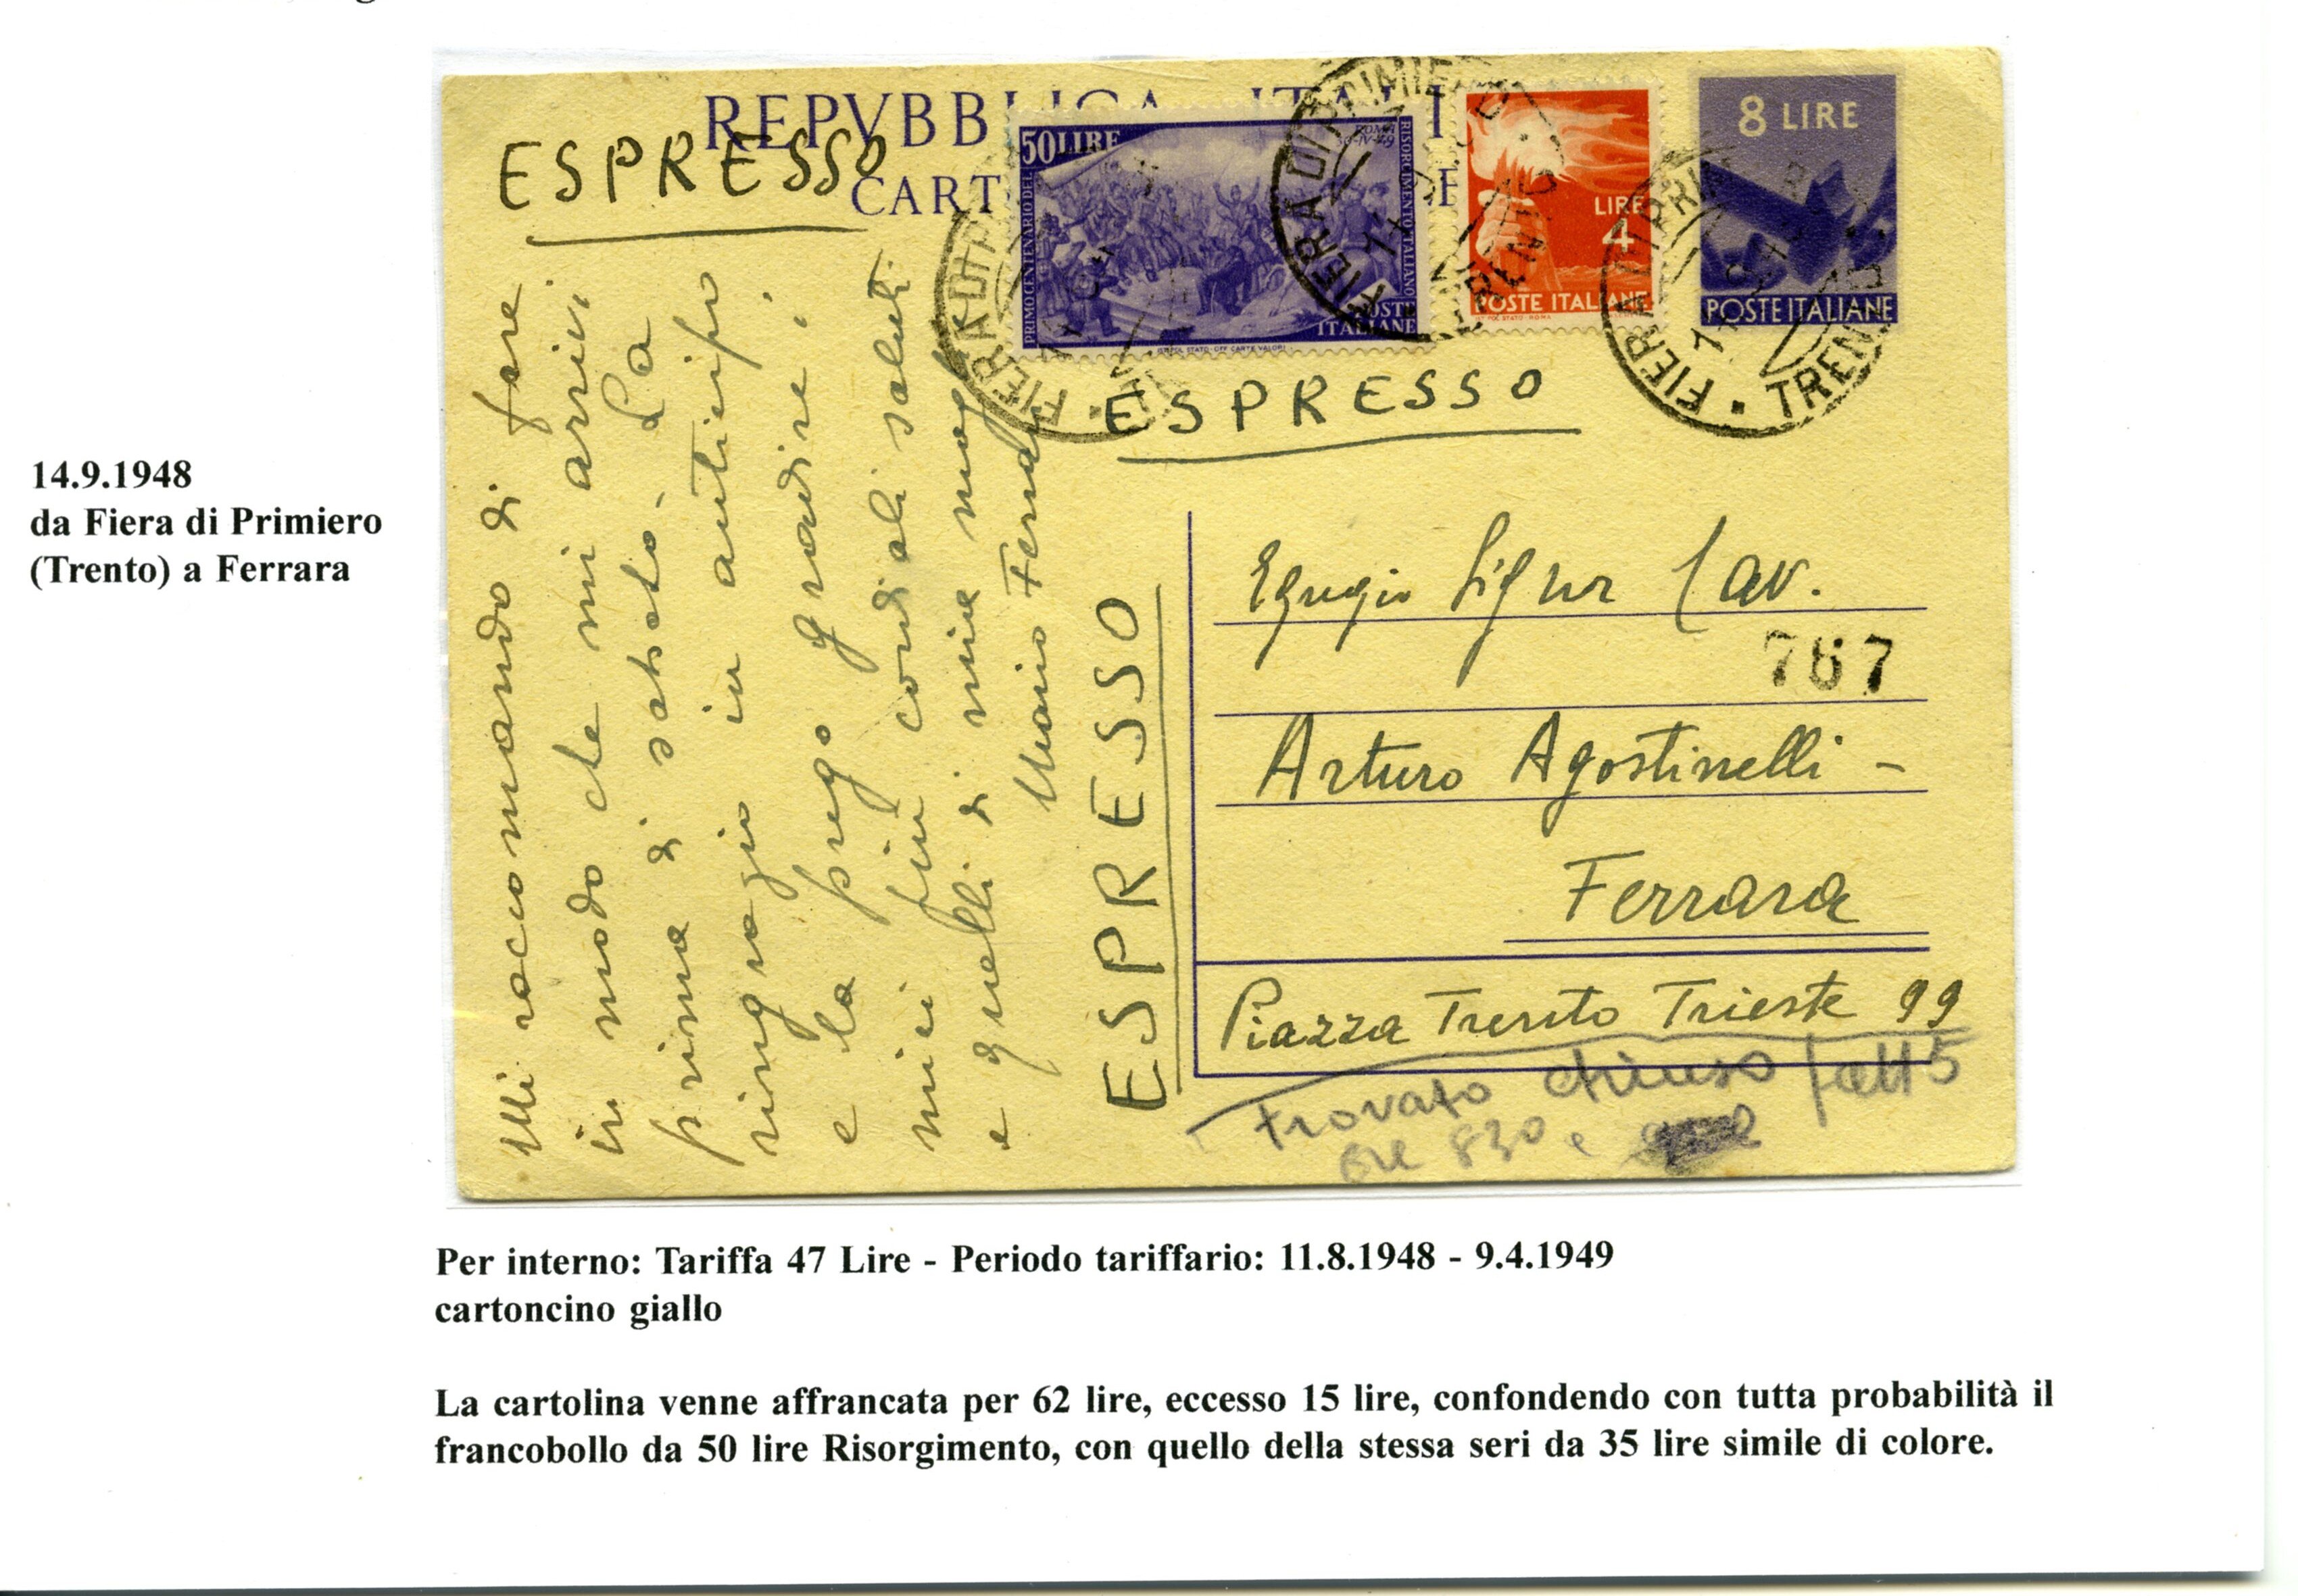 14.9.1948
da Fiera di Primiero
(Trento) a Ferrara
REPVBB
CART
ESPRESSO
50 LIRE
ROMA
PRIMO CENTENARIO DEL
RISORGIMENTO ITALIANO
POSTE
ITALIANE
LIRE
4
POSTE ITALIANE
8 LIRE
POSTE ITALIANE
FIERA DI PRIMIERO
TRENTO
ESPRESSO
ESPRESSO
Egregio Signor Cav.
787
Arturo Agostinelli -
Ferrara
Piazza Trento Trieste 99
trovato chiuso
ore 830 e
Mi raccomando di fare
in modo che mi arrivi
prima di sabato. La
ringrazio in anticipo
e la prego gradire i
miei più cordiali saluti
e quelli di mia
Mario
Per interno: Tariffa 47 Lire - Periodo tariffario: 11.8.1948 - 9.4.1949
cartoncino giallo
La cartolina venne affrancata per 62 lire, eccesso 15 lire, confondendo con tutta probabilità il
francobollo da 50 lire Risorgimento, con quello della stessa seri da 35 lire simile di colore.